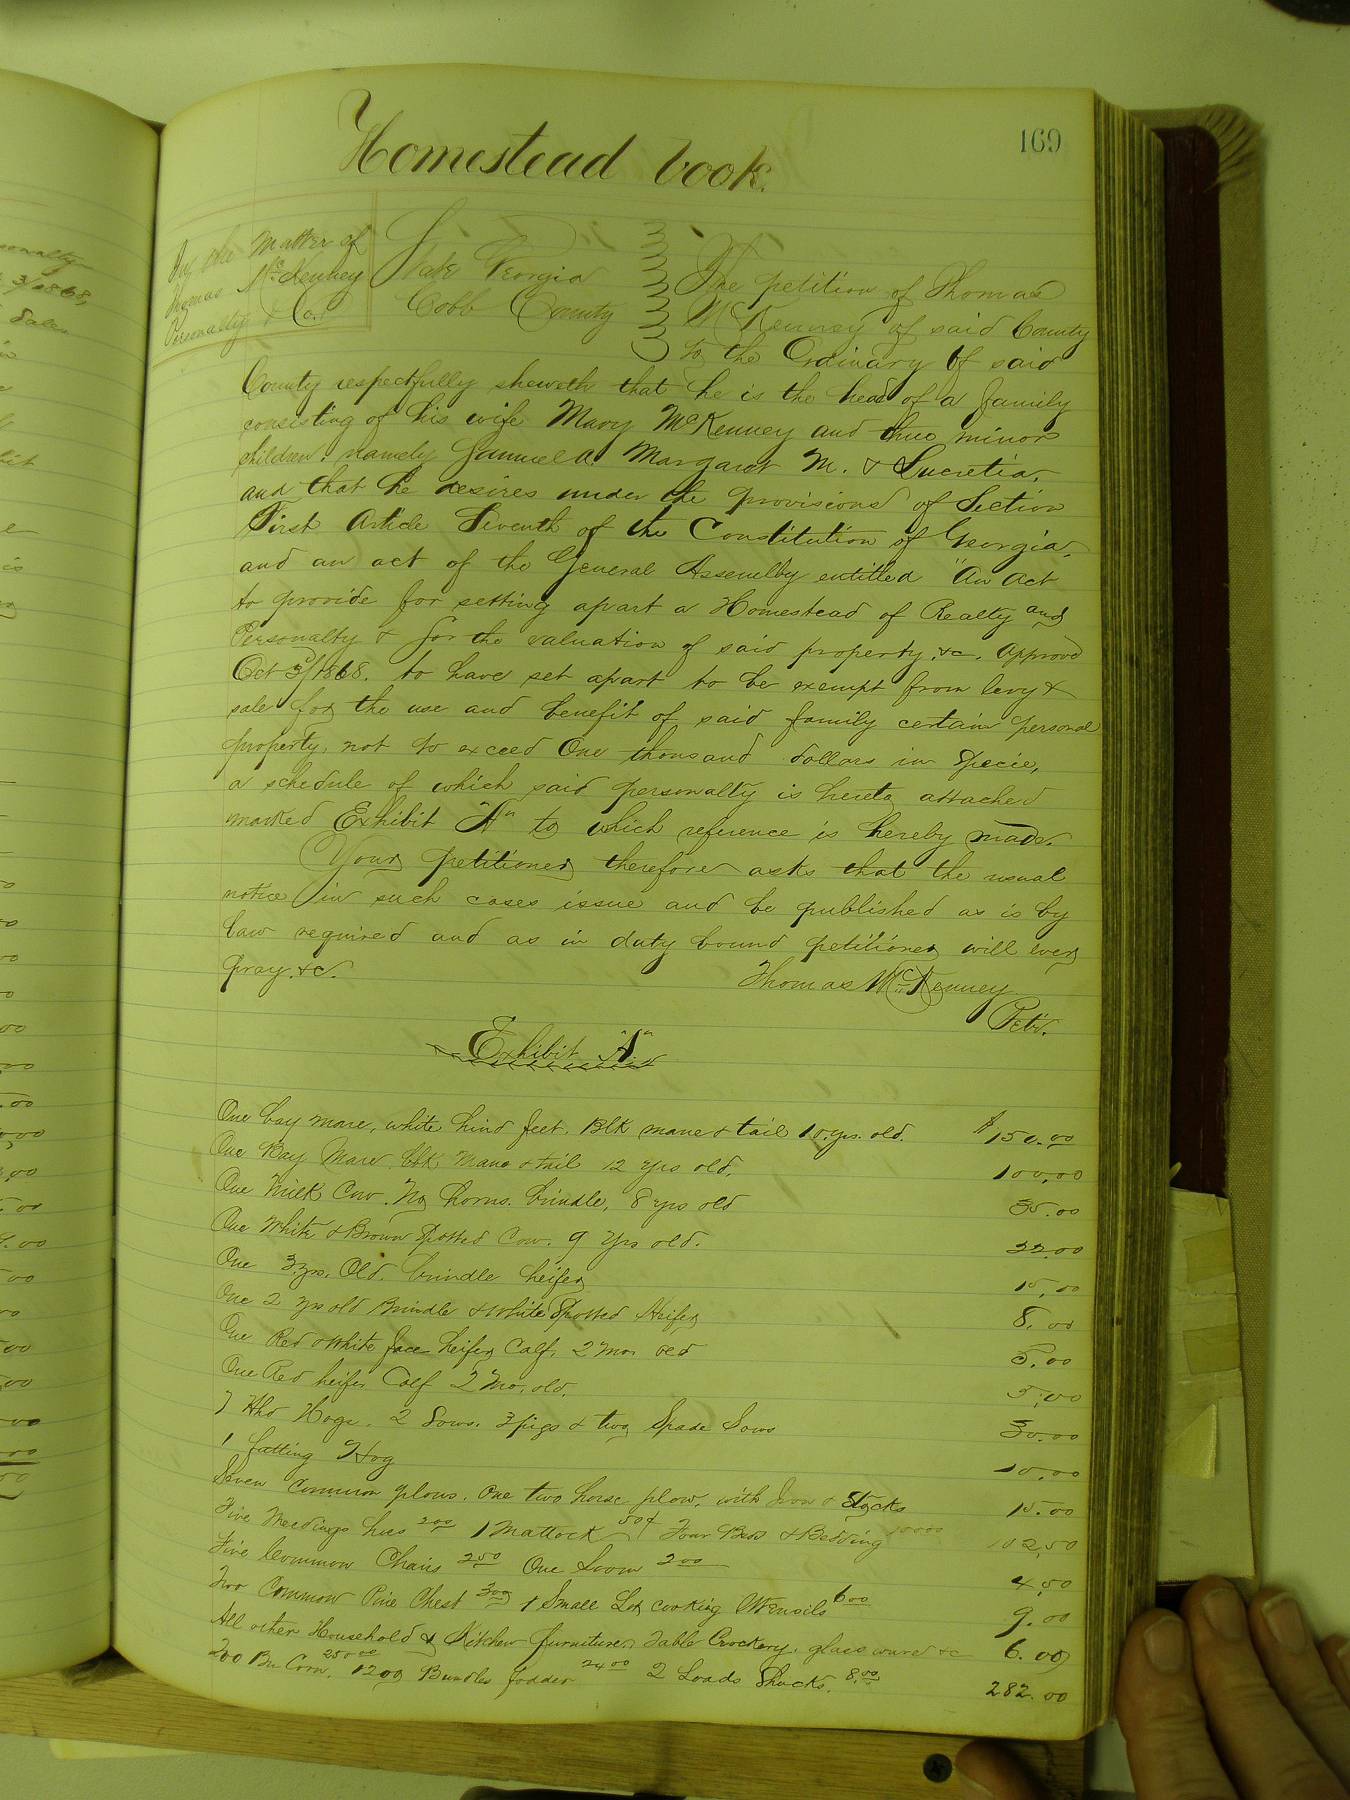 169
Homestead book.
In the Matter of
Thomas McKenney
Personalty & Co.
State Georgia
Cobb County
The petition of Thomas
McKenney of said County
to the Ordinary of said
County respectfully sheweth that he is the head of a family
consisting of his wife Mary McKenney and three minor
children, namely Samuel A. Margaret M. & Lucretia.
and that he desires under the provisions of Section
First Article Seventh of the Constitution of Georgia.
and an act of the General Assembly entitled "An Act
to provide for setting apart a Homestead of Realty and
Personalty & for the valuation of said property. &c. Approved
Oct 3/1868. to have set apart to be exempt from levy &
sale for the use and benefit of said family certain personal
property, not to exceed One thousand dollars in Specie,
a schedule of which said personalty is hereto attached
marked Exhibit "A" to which reference is hereby made.
Your petitioner therefore asks that the usual
notice in such cases issue and be published as is by
law required and as in duty bound petitioner will ever
pray. &c.
Thomas McKenney
Petr.
Exhibit "A"
One bay mare, white hind feet. Blk mane & tail 10 yrs. old. $150.00
One Bay Mare blk Mane & tail 12 yrs old. 100.00
One Milk Cow. No Horns. brindle, 8 yrs old 35.00
One White & Brown Spotted Cow. 9 Yrs old. 22.00
One 3 yrs. Old. brindle heifer 15.00
One 2 yrs old Brindle & White Spotted Heifer 8.00
One Red & White face heifer Calf, 2 Mos old 5.00
One Red heifer Calf 2 Mo. old. 5.00
7 Hd Hogs. 2 Sows. 3 pigs & two Spade Sows 30.00
1 fatting Hog 10.00
Seven Common plows. One two horse plow, with Iron & Stocks 15.00
Five Weeding hoes 2.00 1 Mattock 50¢ Four Beds & Bedding 100.00 102.50
Five Common Chairs 2.50 One Loom 2.00 4.50
Two Common Pine Chest 3.00 1 Small Lot cooking Utensils 6.00 9.00
All other Household & Kitchen furniture. Table Crockery. glass ware &c 6.00
200 Bu Corn. 250.00 1200 Bundles fodder 24.00 2 Loads Shucks. 8.00 282.00